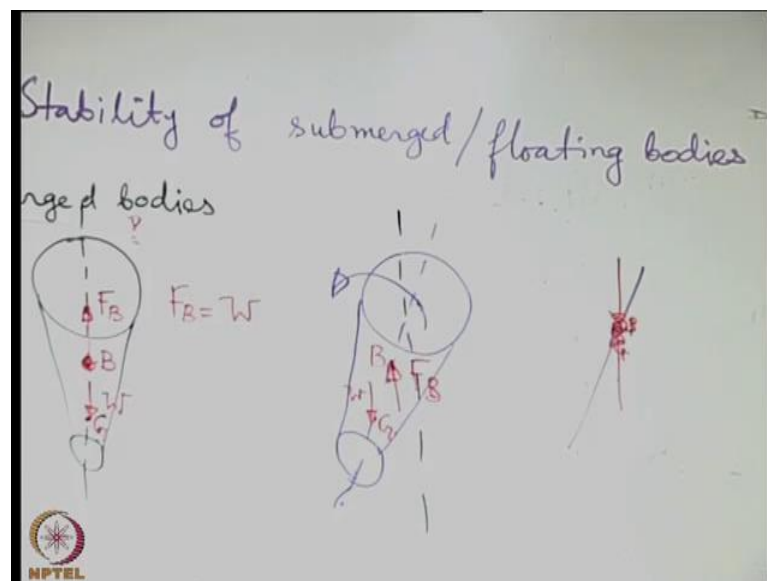 Stability of submerged/floating bodies
rged bodies
F_B F_B = W
B
W
G
B
F_B
W
G
NPTEL